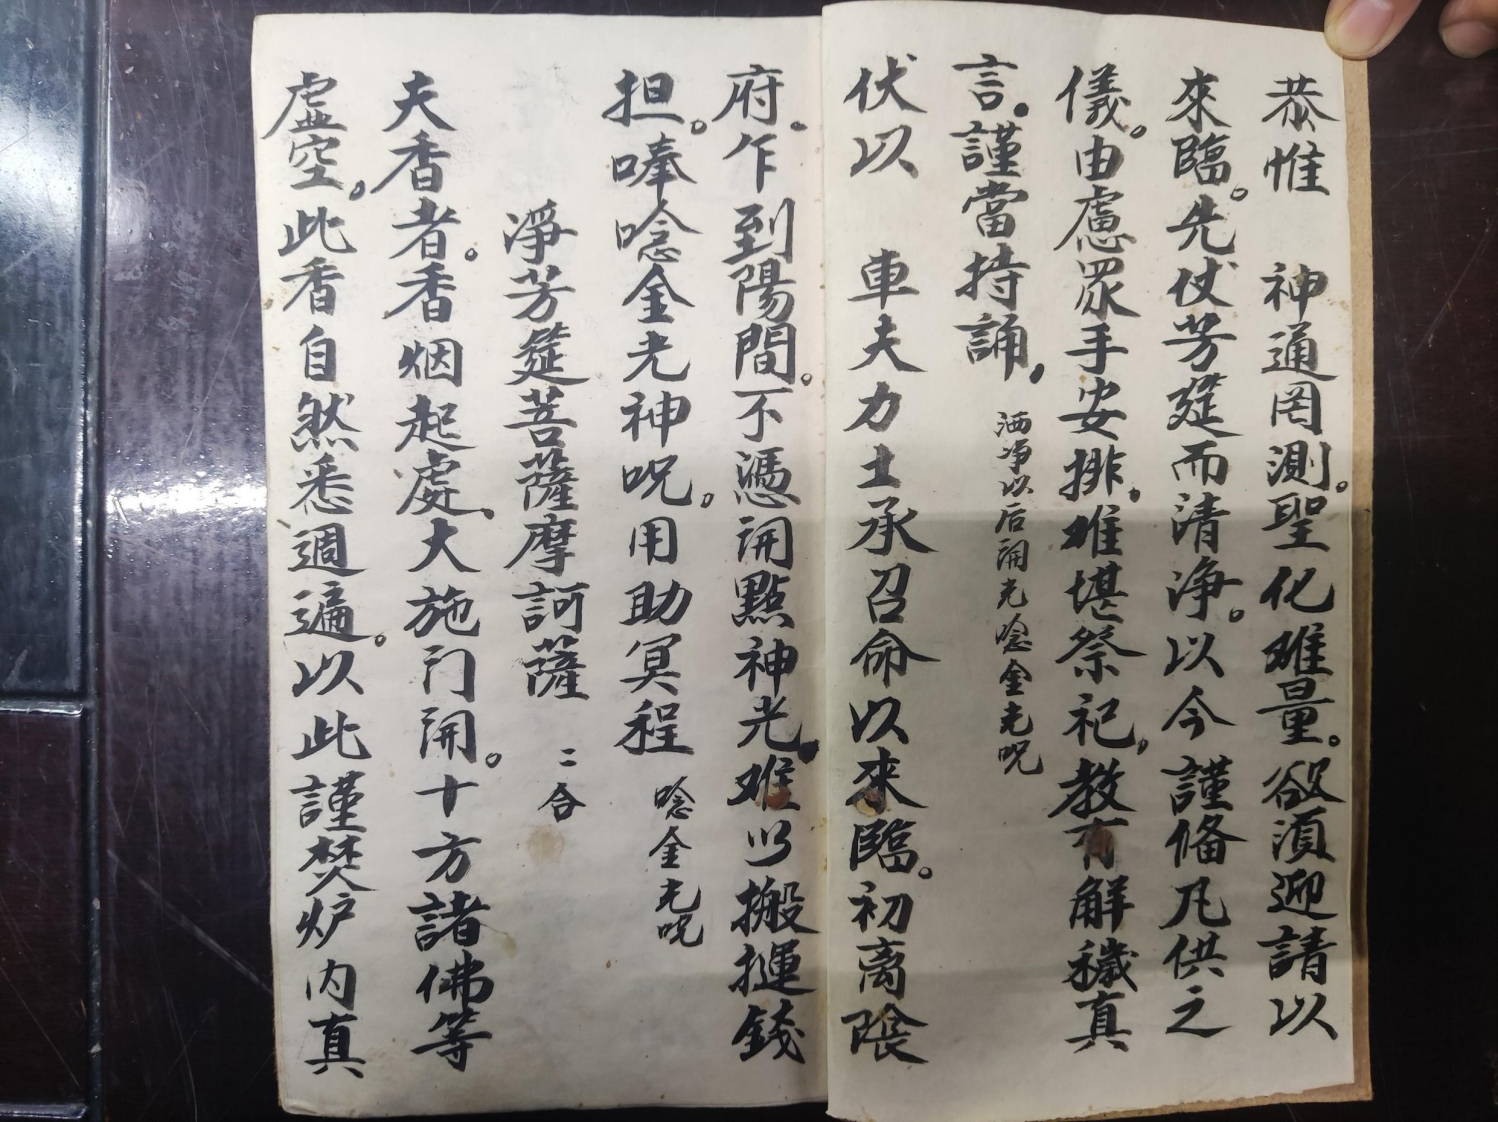 恭惟　神通罔測。聖化难量。欲須迎請以
來臨。先仗芳筵而清净。以今謹俻凡供之
儀。由慮眾手安排，难堪祭祀，教有解穢真
言。謹當持誦，
洒净以后開光唸金光呪
伏以　車夫力士承召命以來臨。初离陰
府。乍到陽間。不憑開點神光，难以搬運錢
担。唪唸金光神呪。用助冥程
唸金光呪
淨芳筵菩薩摩訶薩
二合
夫香者。香烟起處、大施门開。十方諸佛等
虚空。此香自然悉週遍。以此謹焚炉内真